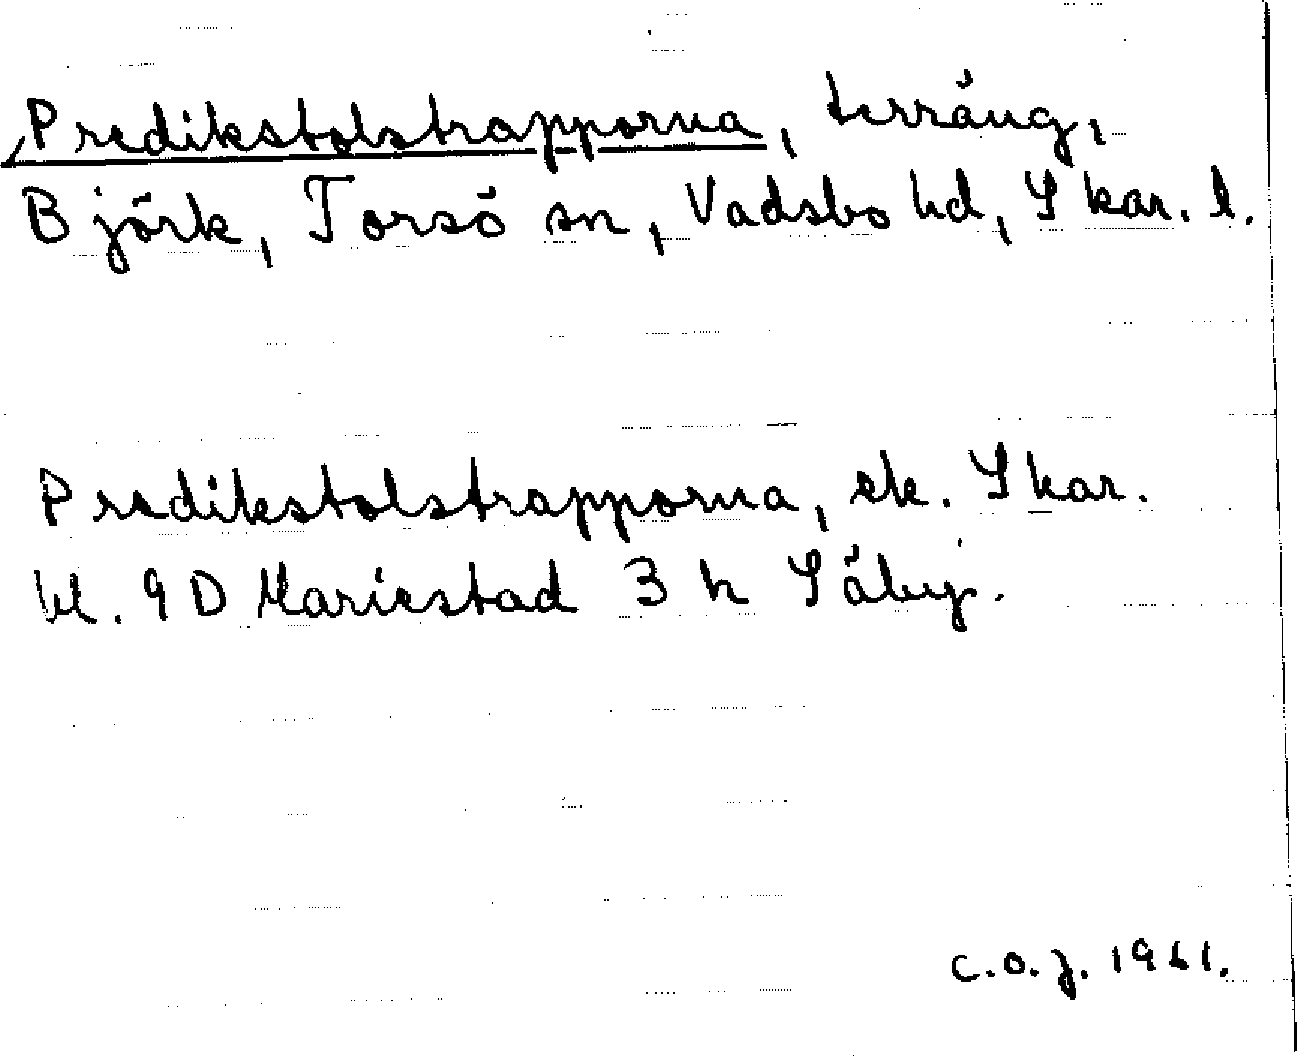 Predikstolstrapporna, terräng,
Björk, Torsö sn, Vadsbo hd, Skar. l.
Predikstolstrapporna, ek. Skar.
bl. 9D Mariestad 3 h Säby.
C.O.J. 1961.